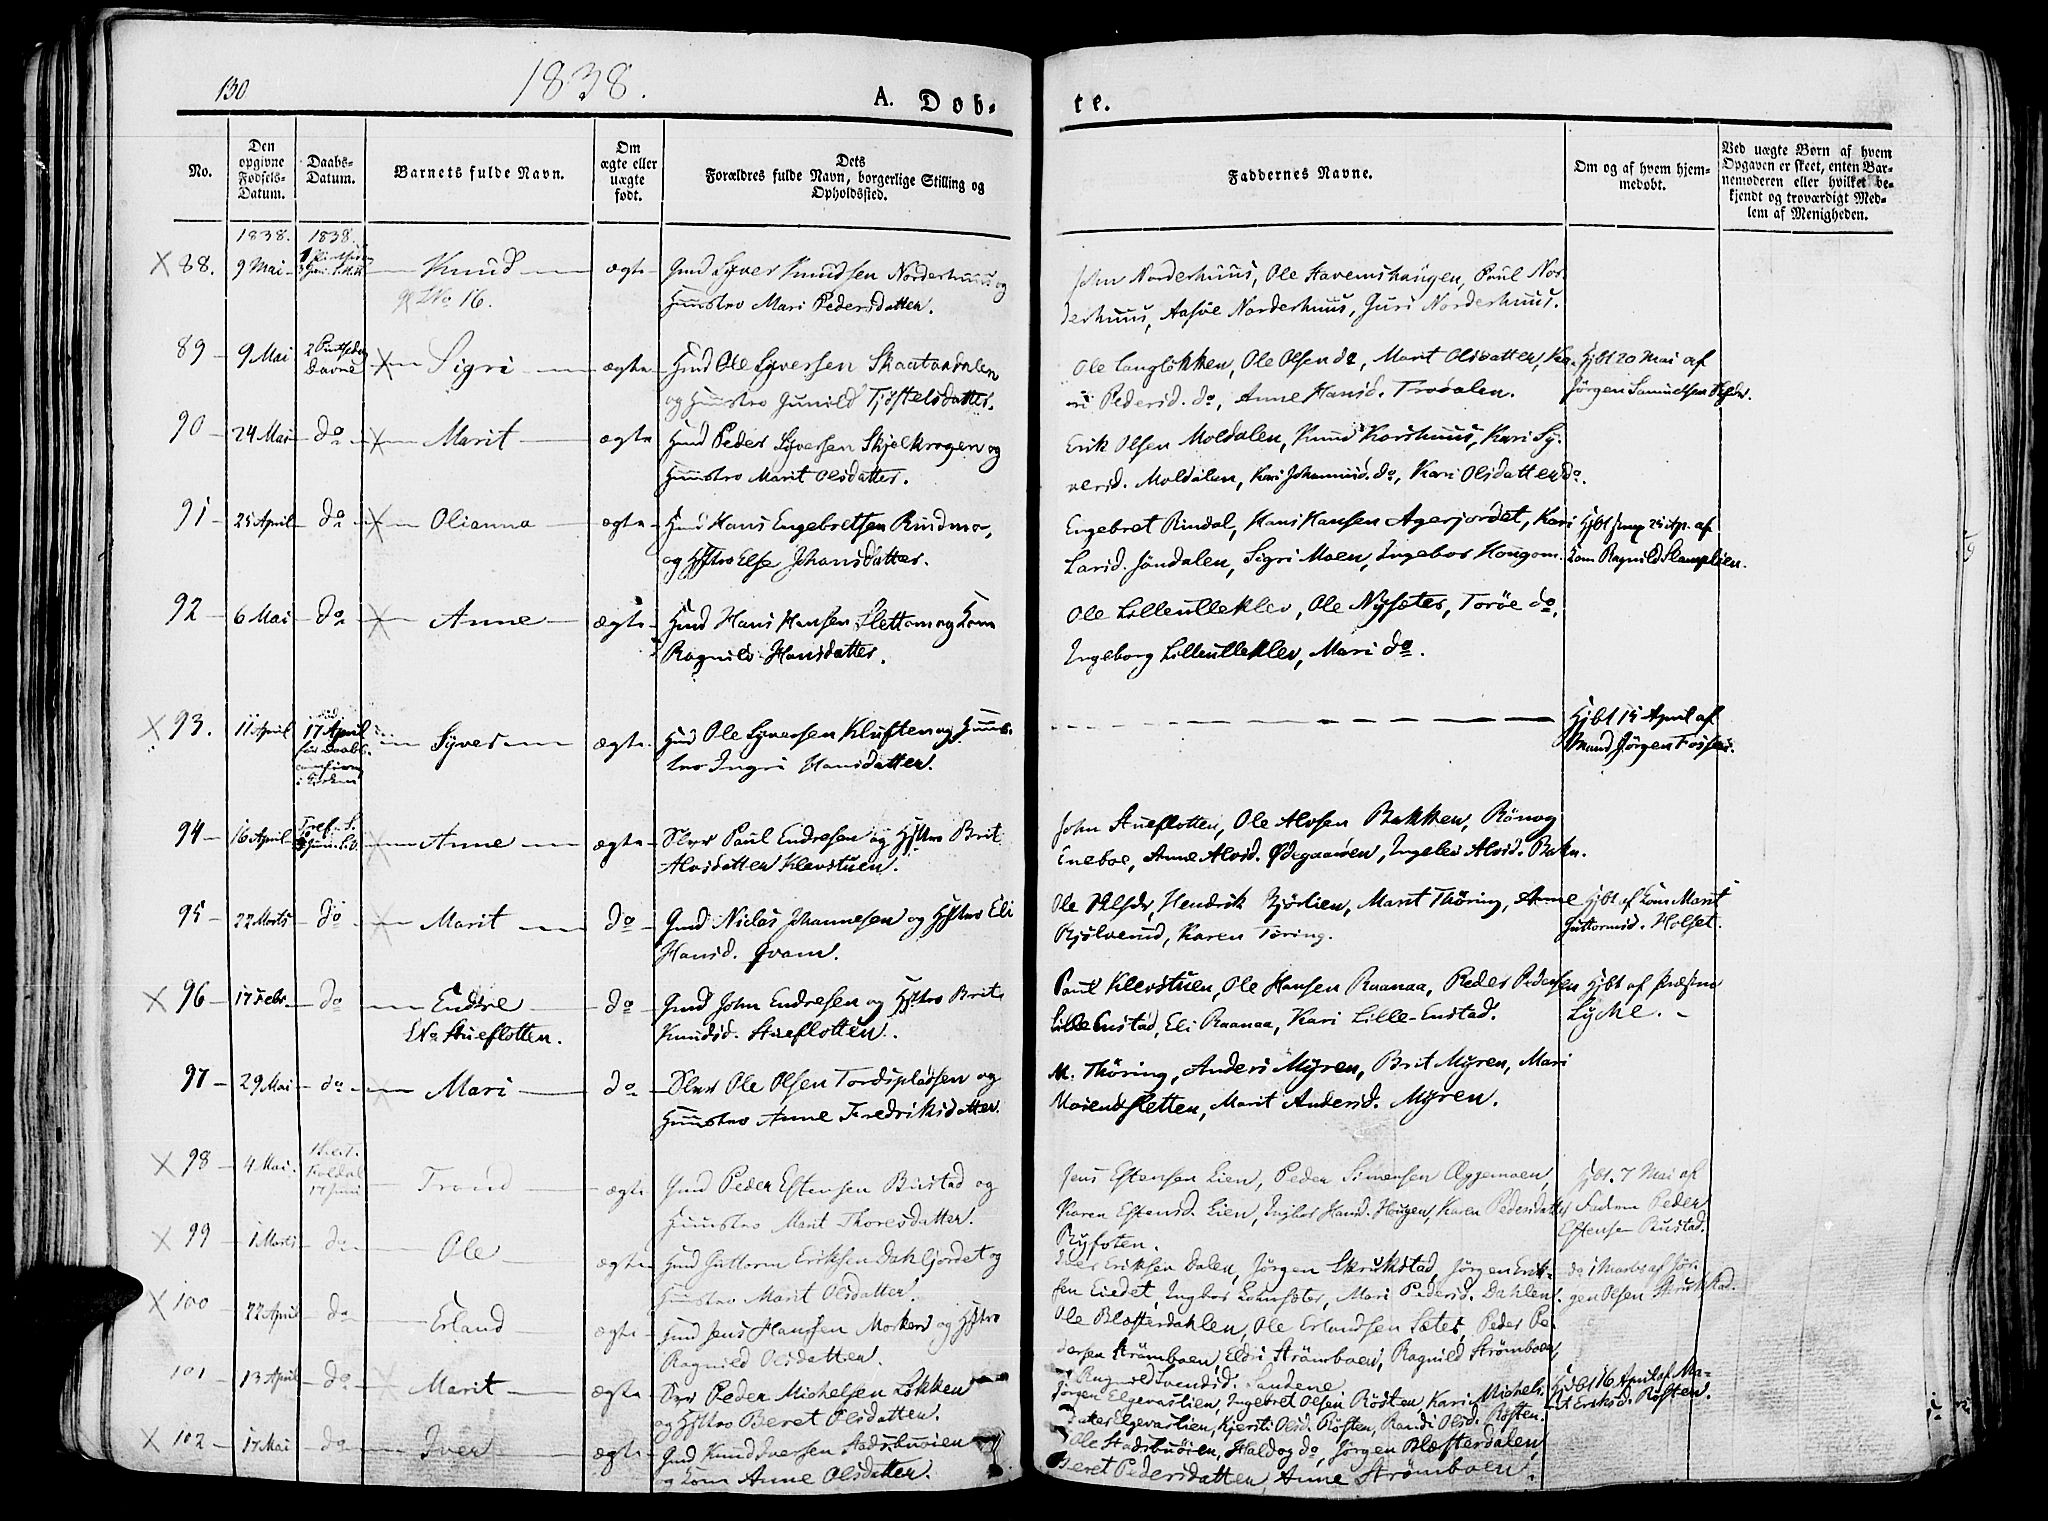 130
1838.
A. Døb-
te.
No.
Den
opgivne
Fødsels-
Datum.
Daabs-
Datum.
Barnets fulde Navn.
Om
ægte eller
uægte
født.
Dets
Forældres fulde Navn, borgerlige Stilling og
Opholdssted.
Faddernes Navne.
Om og af hvem hjem-
medøbt.
Ved uægte Børn af hvem
Opgaven er skeet, enten Bar-
nemoderen eller hvilket be-
kjendt og troværdigt Med-
lem af Menigheden.
1838. 1838.
88. 9 Mai Knud ægte Gmd Syver Knudsen Norderhuus og
No 16.
Huustro Mari Pedersdatter.
John Norderhuus, Ole Havernshaugen, Paul Nor-
derhuus, Aasve Norderhuus, Guri Norderhuus.
89 9 Mai 2 Pintsedag
Dovre Sigri ægte Hmd Ole Syversen Skaataadalen
og Huustro Gunild Tjøstelsdatter.
Ole Langløkken, Ole Olsen do, Marit Olsdatter, Ka-
ri Pedersd. do, Anne Hansd. Trodalen.
Hjbt 20 Mai af
Jørgen Samuelsen
90 24 Mai do Marit ægte Hmd Peder Syversen Skjelkrogen og
Huustro Marit Olsdatter.
Erik Olsen Moldalen, Knud Korshuus, Kari Sy-
versd. Moldalen, Kari Johannisd. do, Kari Olsdatter do.
91 25 April do Olianna ægte Hmd Hans Engebretsen Rindmo,
og Hstro Else Johansdatter.
Engebret Rindal, Hans Hansen Agerjordet, Kari
Larsd. Jøndalen, Sigri Moen, Ingebor Hougom.
Hjbt 25 Ap. af
Kone Ragnild Slamplien.
92 6 Mai do Anne ægte Hmd Hans Hansen Slettom og Kone
Ragnild Hansdatter.
Ole Lilleulleklev, Ole Nysæter, Torøe do,
Ingeborg Lilleulleklev, Mari do.
93. 11 April 17 April
i Kirken Syver ægte Hmd Ole Syversen Kluften og Huus-
tro Ingri Hansdatter.
Hjbt 15 April af
Mand Jørgen Fosse.
94 16 April Anne ægte Slvr Paul Endresen og Hstro Brit
Alvsdatter Klevstuen.
John Stueflotten, Ole Alvsen Bakken, Rønog
Eneboe, Anne Alvsd. Ødegaarden, Ingeleiv Alvsd. Bakn.
95 22 Marts do Marit do Gmd Niclas Johannesen og Hstro Eli
Hansd. Qvam.
Ole, Hendrik Bjørlien, Marit Thøring, Anne
Bjølverud, Karen Tøring.
Hjbt af Kone Marit
Guttormsd. Holset.
96 17 Febr. do Endre do Gmd John Endresen og Hstro Brit
EN. Stueflotten.
Knudsd. Stueflotten.
Paul Klevstuen, Ole Hansen Raanaa, Peder Pedersen
Lille Enstad, Eli Raanaa, Kari Lille-Enstad.
Hjbt af Præsten
Lyche.
97 29 Mai do Mari do Slvr Ole Olsen Tordspladsen og
Huustro Anne Fredriksdatter.
M. Thøring, Anders Myren, Brit Myren, Mari
Moiendsletten, Marit Andersd. Myren.
98 4 Mai. 17 Juni Trond ægte Gmd Peder Estensen Bustad og
Huustro Marit Thoresdatter.
Jens Estensen Lien, Peder Simensen Æggemoen,
Karen Estensd. Lien, Ingbor Hansd. Heigen, Karen Pedersdatter
Ryfoten.
Hjbt. 7 Mai af
Faderen Peder
Estensen Bustad.
99 1 Marts do Ole ægte Hmd Guttorm Eriksen Dahljordet og
Huustro Marit Olsdatter.
Iver Eriksen Dalen, Jørgen Skrukstad, Jørgen Erik-
sen Eiedet, Ingbor Lohnsæter, Mari Pedersd. Dahlen.
do 1 Marts af Jør-
gen Olsen Skrukstad.
100 22 April do Erland ægte Hmd Jens Hansen Morken og Hstro
Ragnild Olsdatter.
Ole Blæsterdahlen, Ole Erlandsen Sæter, Peder Pe-
dersen Strømboen, Eldri Strømboen, Ragnild Strømboen,
Svendsd. Sandene
101 13 April do Marit ægte Slvr Peder Michelsen Løkken
og Hstro Beret Olsdatter.
Jørgen Elgevaslien, Ingebret Olsen Røsten, Kari Michels-
datter Elgevaslien, Kjersti Olsd. Røsten, Randi Olsd. Røsten.
Hjbt 16 April af Ma-
rit Eriksd. Røsten.
102 17 Mai do Iver ægte Gmd Knud Iversen Stadsbuøien
og Kone Anne Olsdatter.
Ole Stadsbuøien, Haldog do, Jørgen Blæsterdalen,
Beret Pedersdatter, Anne Strømboen.